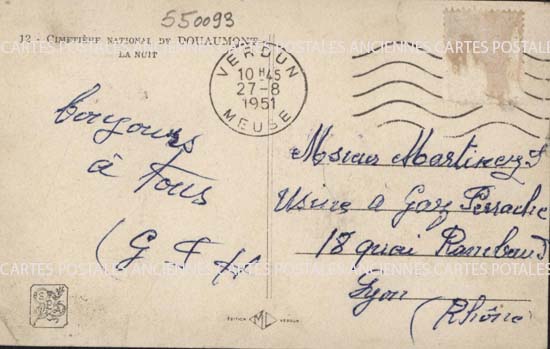 550093
12 - CIMETIÈRE NATIONAL DE DOUAUMONT
LA NUIT
VERDUN
10 H 45
27-8
1951
MEUSE
bonjours
à Tous
(G F H
Martinez
Usine a Gaz Perrache
18 quai Rambaud
Lyon
(Rhône)
EDITION MD VERDUN
CARTES POSTALES ANCIENNES CARTES POSTALES ANCIENNES